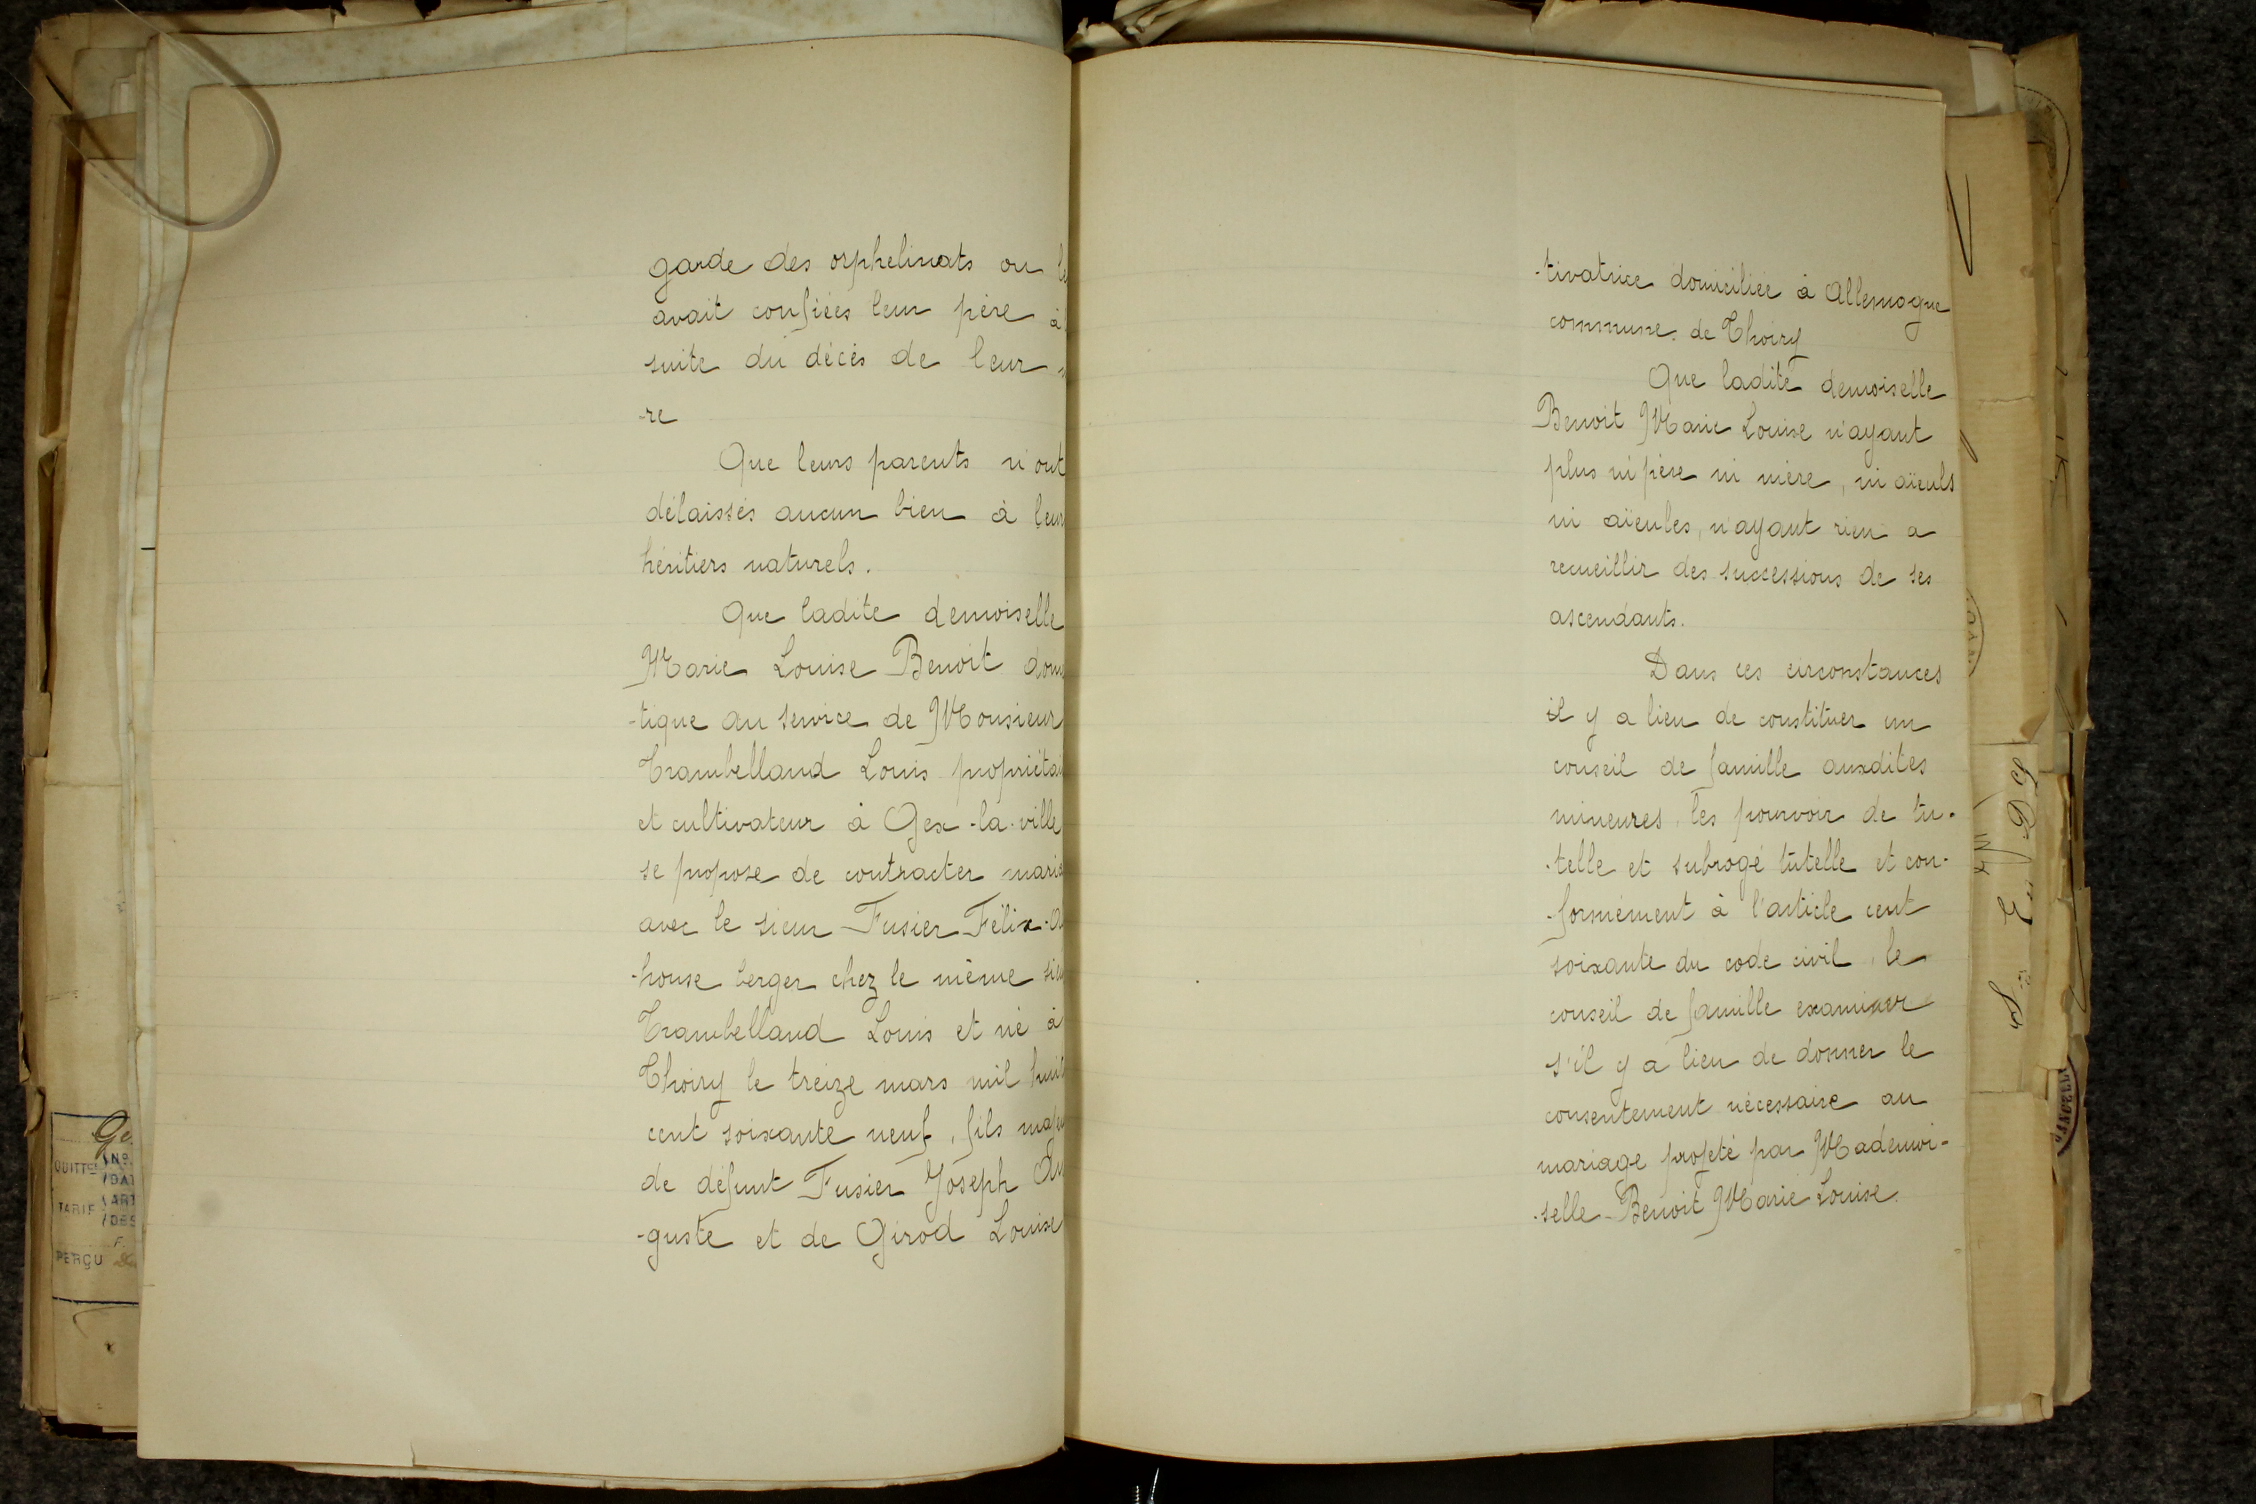 garde des orphelinats ou le
avait confiées leur père à
suite du décès de leur
-re
Que leurs parents n'ont
délaissés aucun bien à leur
héritiers naturels.
Que ladite demoiselle
Marie Louise Benoit dom
-tique au service de Monsieur
Trambelland Louis propriétai
et cultivateur à Gex-la-ville
se propose de contracter maria
avec le sieur Fusier Félix-A
-honse berger chez le même sieu
Trambelland Louis et né à
Thoiry le treize mars mil huit
cent soixante neuf, fils majeu
de défunt Fusier Joseph Au
-guste et de Girod Louise
-tivatrice domiciliée à Allemogne
commune de Thoiry
Que ladite demoiselle
Benoit Marie Louise n'ayant
plus ni père ni mère, ni aïeuls
ni aïeules, n'ayant rien a
recueillir des successions de ses
ascendants.
Dans ces circonstances
il y a lieu de constituer un
conseil de famille auxdites
mineures, les pourvoir de tu-
-telle et subrogé tutelle et con-
-formément à l'article cent
soixante du code civil, le
conseil de famille examiner
s'il y a lieu de donner le
consentement nécessaire au
mariage projeté par Mademoi-
-selle Benoit Marie Louise.
QUITTCE
No.
TARIF
PERÇU